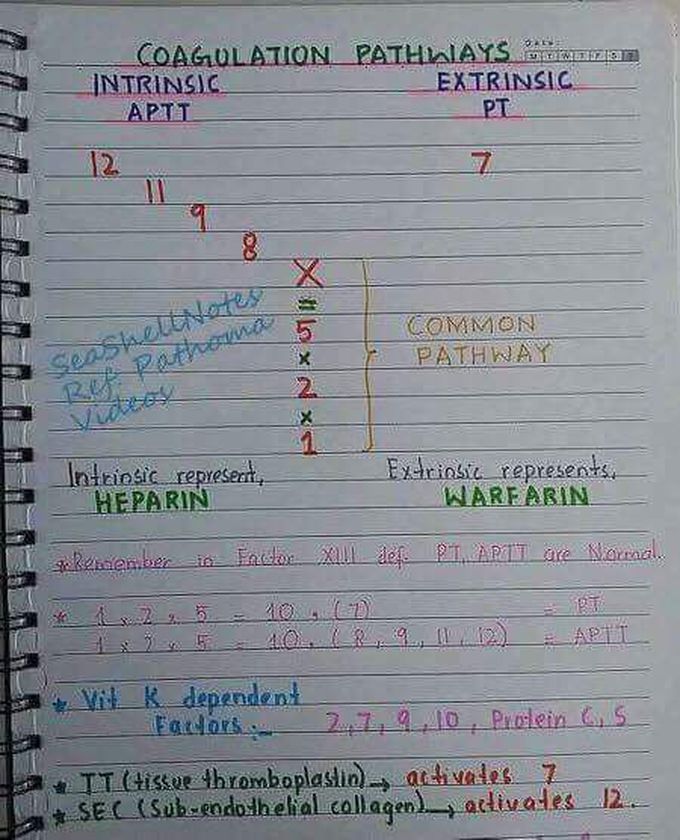 COAGULATION PATHWAYS
DATE:
M T W T F S
INTRINSIC
EXTRINSIC
APTT
PT
12
7
11
9
8
X
=
5
x
2
x
1
COMMON
PATHWAY
SeaShellNotes
Ref. Pathoma
Videos
Intrinsic represent,
HEPARIN
Extrinsic represents,
WARFARIN
*Remember in Factor XIII def. PT, APTT are Normal.
* 1 x 2 x 5 = 10, (7) = PT
1 x 2 x 5 = 10, (8, 9, 11, 12) = APTT
* Vit K dependent
Factors:- 2,7,9,10, Protein C, S
* TT (tissue thromboplastin) → activates 7
* SEC (Sub-endothelial collagen) → activates 12.